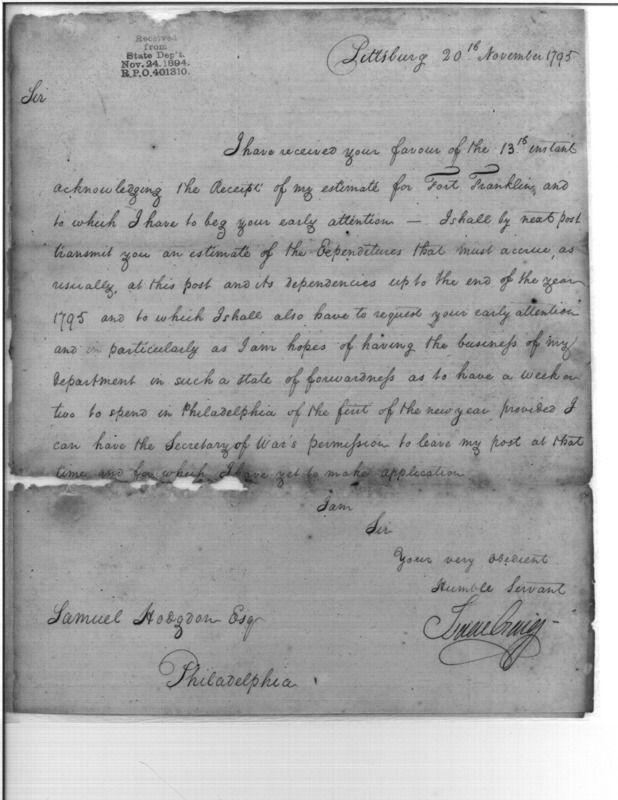 Received
from
State Dep't.
Nov. 24. 1894.
R.P.O. 401310.
Pittsburg 20th November 1795
Sir
I have received your favour of the 13th instant
acknowledging the Receipt of my estimate for Fort Franklin, and
to which I have to beg your early attention — I shall by next post
transmit you an estimate of the Expenditures that must accrue, as
usually, at this post and its dependencies up to the end of the year
1795 and to which I shall also have to request your early attention
and in particularly as I am hopes of having the business of my
Department in such a state of forwardness as to have a week or
two to spend in Philadelphia of the first of the new year provided I
can have the Secretary of War's permission to leave my post at that
time and for which I have yet to make application
I am
Sir
Your very obedient
Humble Servant
Isaac Craig
Samuel Hodgdon Esq
Philadelphia